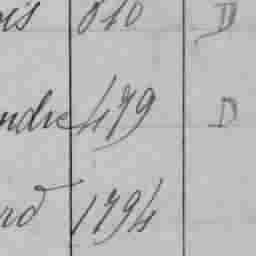 ois 810 D
ndre 479 D
rd 1794